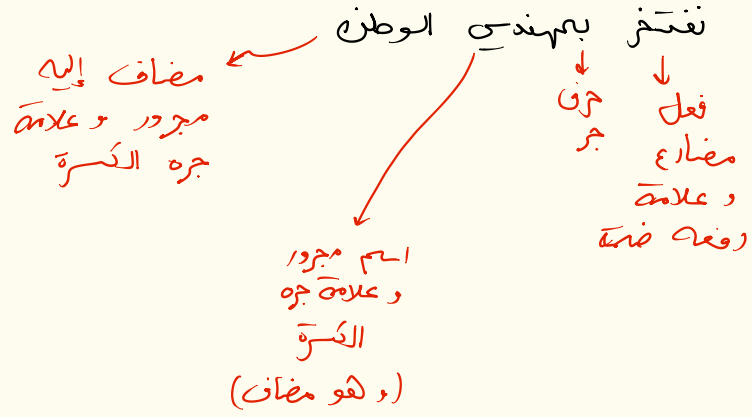 نفتخر بمهندسي الوطن
فعل
مضارع
و علامة
رفعه ضمة
حرف
جر
اسم مجرور
و علامة جره
الكسرة
(و هو مضاف)
مضاف إليه
مجرور و علامة
جره الكسرة